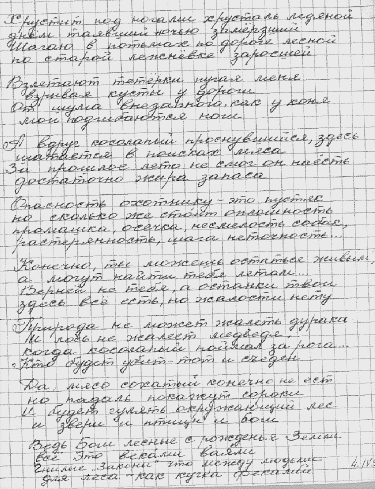 Хрустит под ногами хрусталь ледяной
днём таявший ночью замёрзший
Шагаю в потёмках по дороге лесной
по старой лежнёвке заросшей
Взлетают тетерки пугая меня
взрывая кусты у дороги
От шума внезапного, как у коня
мои подгибаются ноги
А вдруг косолапый проснувшийся, здесь
шатается в поисках мяса
За прошлое лето не смог он наесть
достаточно жира запаса
Опасность охотнику - это пустяк
но сколько же стоит оплошность
промашка, осечка, несмелость собак,
растерянность, шага неточность...
Конечно, ты можешь остаться живым,
а могут найти тебя летом...
Верней не тебя, а останки твои
здесь всё есть, но жалости нету
Природа не может жалеть дурака
И лось не жалеет медведя
когда косолапый поймал за рога...
Кто будет убит - тот и съеден
Да мясо сохатый конечно не ест
но падаль покажут сороки
И будет гулять окружающий лес
и звери и птицы и
Ведь Бог лесные с рожденья Земли
всё это веками
гнилые "Законы" что между людьми
для леса - как кучка фекалий